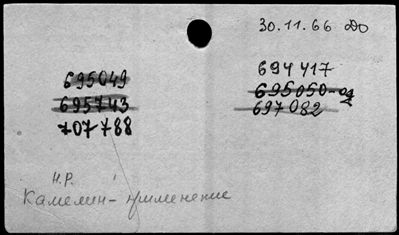 30.11.66 до
695049
695743
707788
694417
695050-од
697082
н.р.
Камелин - применение